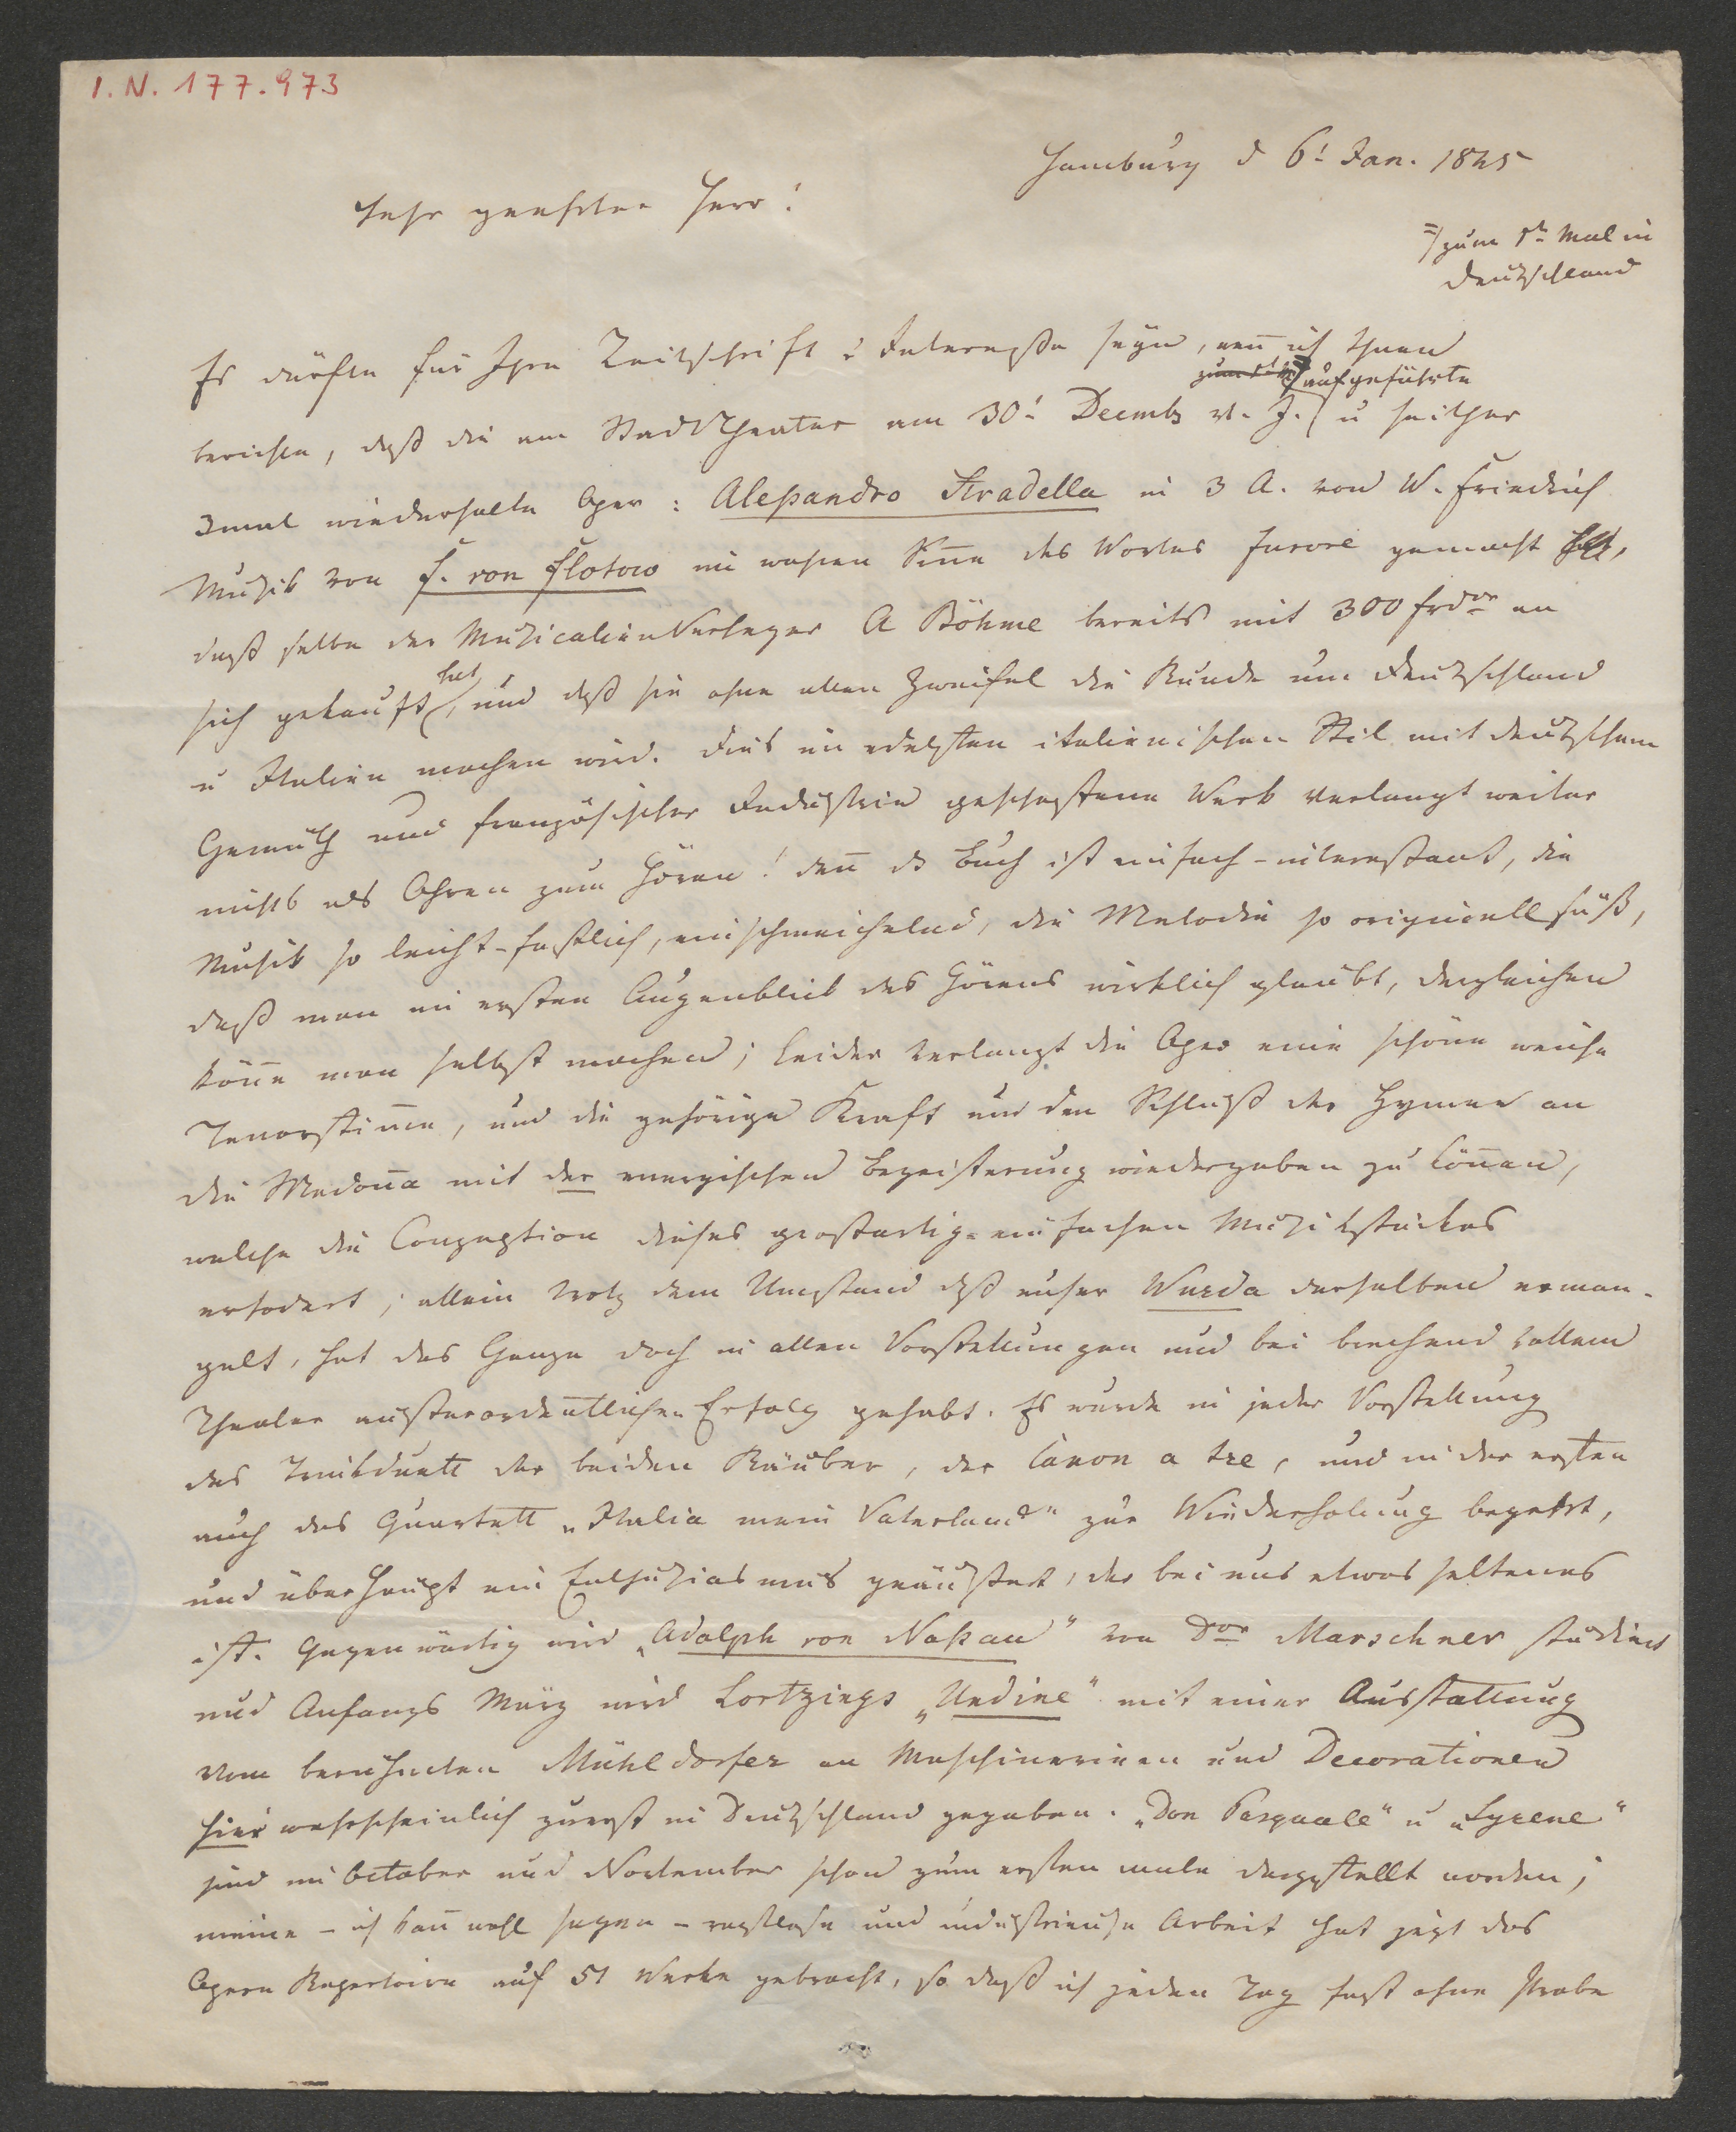 I. N. 177.973
Hamburg d 6! Jan. 1845
Sehr geehrter Herr!
=/ zum 1tn Mal in
Deutschland
Es dürfte für Ihre Zeitschrift v Interesse seyn, wen̄ ich Ihnen
zum 1tn =/ aufgeführte
berichte, daß die am Stadttheater am 30! Decmb v. J. u seither
3mal wiederholte Oper: Aleßandro Stradella in 3 A. von W. Friedrich
Musik von F. von Flotow im wahren Sin̄e des Wortes furore gemacht hat,
daß selbe der Musicalienverleger A Böhme bereits mit 300 frdor an
hat
sich gekauft, und daß sie ohne allen Zweifel die Runde um Deutschland
u Italien machen wird. Dies im edelsten italienischen Stil mit deutschem
Gemüth und französischer Industrie geschaffene Werk verlangt weiter
nichts als Ohren zum Hören! den̄ ds Buch ist einfach-interessant, die
Musik so leicht-faßlich, einschmeichelnd, die Melodie so originell süß,
daß man im ersten Augenblick des Hörens wirklich glaubt, dergleichen
kön̄e man selbst machen; leider verlangt die Oper eine schöne weiche
Tenorstim̄e, und die gehörige Kraft um den Schluß der Hymne an
die Madon̄a mit der energischen Begeisterung wiedergeben zu kön̄en,
welche die Conzeption dieses großartig-einfachen Musikstückes
erfodert; allein trotz dem Umstand daß unser Wurda derselben erman-
gelt, hat das Ganze doch in allen Vorstellungen und bei brechend vollem
Theater außerordentlichen Erfolg gehabt. Es wurde in jeder Vorstellung
das Trinkduett der beiden Räuber, der Canon a tre, und in der ersten
auch das Quartett „Italia mein Vaterland" zur Wiederholung begehrt,
und überhaupt ein Enthusiasmus geäußert, der bei uns etwas seltenes
ist. Gegenwärtig wird „Adolph von Naßau" von Dor Marschner studiert
und Anfangs März wird Lortzings „Undine" mit einer Ausstattung
vom berühmten Mühldorfer an Maschinerieen und Decorationen
hier wahrscheinlich zuerst in Deutschland gegeben. „Don Pasquale" u „Syrene"
sind im October und November schon zum ersten male dargestellt worden;
meine - ich kan̄ wohl sagen - rastlose und industrieuse Arbeit hat jezt das
Opern Repertoire auf 51 Werke gebracht, so daß ich jeden Tag fast ohne Probe